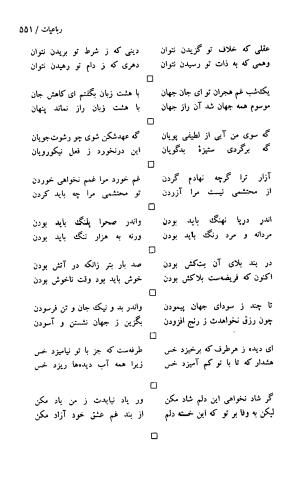 رباعیات / ۵۵۱
عقلی که خلاف تو گزیدن نتوان
دینی که ز شرط تو بریدن نتوان
وهمی که به ذات تو رسیدن نتوان
دهری که ز دام تو رهیدن نتوان
یک‌شب غم هجران تو ای جان جهان
با هشت زبان بگفتم ای کاهش جان
موسوم همه جهان شد آن راز جهان
با هشت زبان راز نماند پنهان
گه سوی من آیی از لطیفی پویان
گه عهدشکن شوی چو رشوت‌جویان
گه برگردی ستیزهٔ بدگویان
این درنخورد ز فعل نیکورویان
آزار ترا گرچه نهادم گردن
غم خورد مرا غمم نخواهی خوردن
از محتشمی نیست مرا آزردن
تو محتشمی مرا چه باید کردن
اندر دریا نهنگ باید بودن
واندر صحرا پلنگ باید بودن
مردانه و مرد رنگ باید بودن
ورنه به هزار ننگ باید بودن
در بند بلای آن بت‌کش بودن
صد بار بتر زانکه در آتش بودن
اکنون که فریضه‌ست بلاکش بودن
خوش باید بود وقت ناخوش بودن
تا چند ز سودای جهان پیمودن
واندر بد و نیک جان و تن فرسودن
چون رزق نخواهدت ز رنج افزودن
بگزین ز جهان نشستن و آسودن
ای دیده ز هر طرف که برخیزد خس
طرفه‌ست که جز با تو نیامیزد خس
هشدار که تا با تو کم آمیزد خس
زیرا همه آب دیده‌ها ریزد خس
گر شاد نخواهی این دلم شاد مکن
ور یاد نیایدت ز من یاد مکن
لیکن به وفا بر تو که این خسته دلم
از بند غم عشق خود آزاد مکن